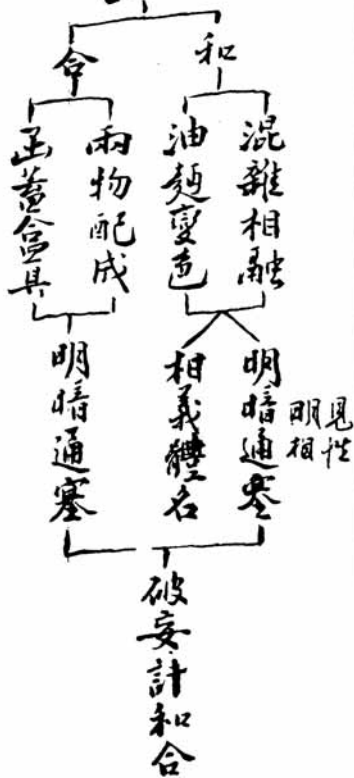 和
混雜相融
油麵變色
明暗通塞
見性
明相
相義體名
合
兩物配成
函蓋盒具
明暗通塞
破妄計和合